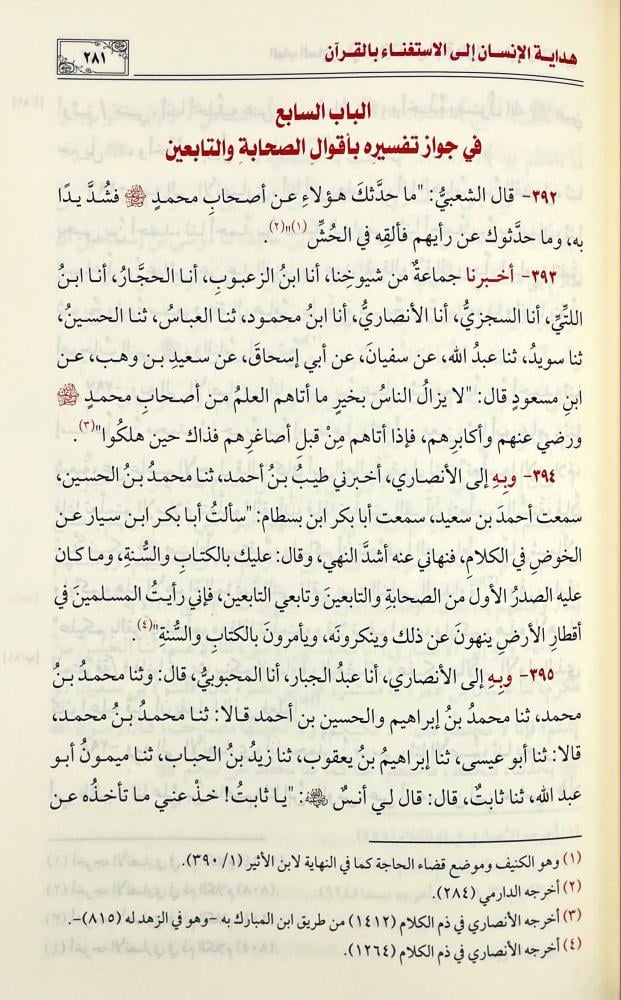 هداية الإنسان إلى الاستغناء بالقرآن
٢٨١
الباب السابع
في جواز تفسيره بأقوال الصحابة والتابعين
٣٩٢- قال الشعبيُّ: "ما حدَّثكَ هؤلاءِ عن أصحابِ محمدٍ ﷺ فشُدَّ يدًا
به، وما حدَّثوك عن رأيهم فألقِه في الحُشِّ(١)"(٢).
٣٩٣- أخبرنا جماعةٌ من شيوخِنا، أنا ابنُ الزعبوبِ، أنا الحجَّارُ، أنا ابنُ
اللتِّيِّ، أنا السجزيُّ، أنا الأنصاريُّ، أنا ابنُ محمود، ثنا العباسُ، ثنا الحسينُ،
ثنا سويدُ، ثنا عبدُ الله، عن سفيانَ، عن أبي إسحاقَ، عن سعيدِ بن وهب، عن
ابنِ مسعودٍ قال: "لا يزالُ الناسُ بخيرٍ ما أتاهم العلمُ من أصحابِ محمدٍ ﷺ
ورضي عنهم وأكابرِهم، فإذا أتاهم مِنْ قبلِ أصاغرِهم فذاك حين هلكُوا"(٣).
٣٩٤- وبِهِ إلى الأنصاري، أخبرني طيبُ بنُ أحمد، ثنا محمدُ بنُ الحسين،
سمعت أحمدَ بن سعيد، سمعت أبا بكر ابن بسطام: "سألتُ أبا بكر ابن سيار عن
الخوضِ في الكلامِ، فنهاني عنه أشدَّ النهي، وقال: عليك بالكتابِ والسُّنةِ، وما كان
عليه الصدرُ الأول من الصحابةِ والتابعينَ وتابعي التابعين، فإني رأيتُ المسلمينَ في
أقطارِ الأرضِ ينهونَ عن ذلك وينكرونَه، ويأمرونَ بالكتابِ والسُّنةِ"(٤).
٣٩٥- وبِهِ إلى الأنصاري، أنا عبدُ الجبار، أنا المحبوبيُّ، قال: وثنا محمدُ بنُ
محمد، ثنا محمدُ بنُ إبراهيم والحسين بن أحمد قالا: ثنا محمدُ بنُ محمد،
قالا: ثنا أبو عيسى، ثنا إبراهيمُ بنُ يعقوب، ثنا زيدُ بنُ الحباب، ثنا ميمونُ أبو
عبد الله، ثنا ثابتٌ، قال: قال لي أنسٌ رضي الله عنه: "يا ثابتُ! خذْ عني ما تأخذُه عن
(١) وهو الكنيف وموضع قضاء الحاجة كما في النهاية لابن الأثير (١/ ٣٩٠).
(٢) أخرجه الدارمي (٢٨٤).
(٣) أخرجه الأنصاري في ذم الكلام (١٤١٢) من طريق ابن المبارك به –وهو في الزهد له (٨١٥)–.
(٤) أخرجه الأنصاري في ذم الكلام (١٢٦٤).